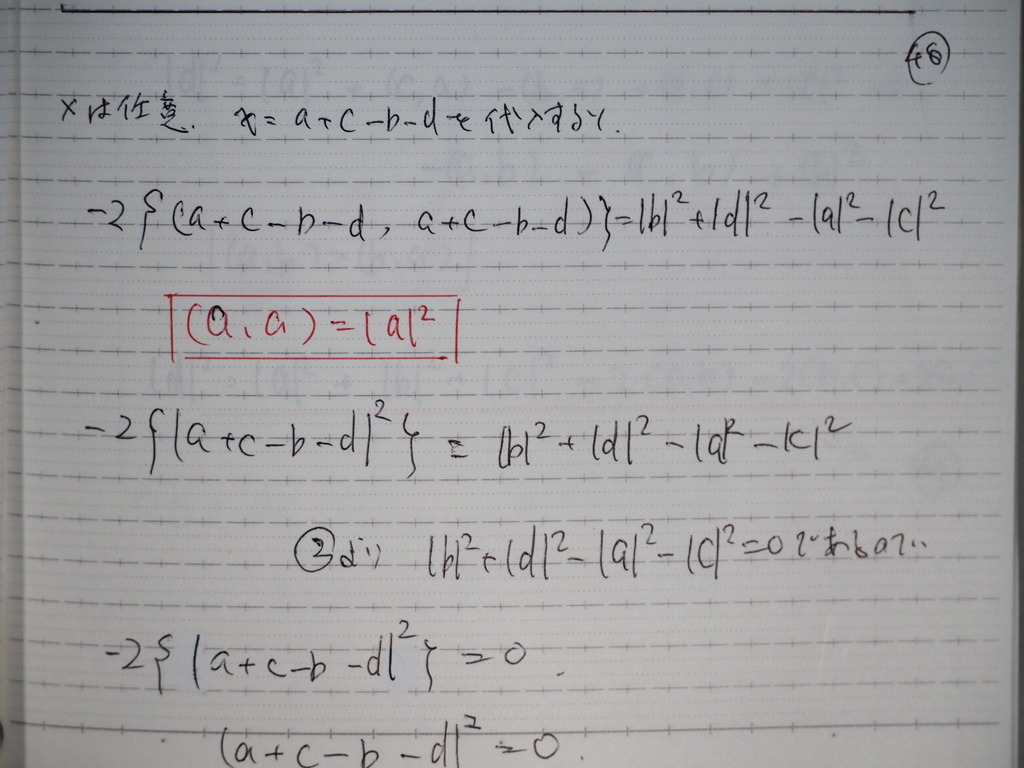 48
xは任意. x=a+c-b-dを代入すると.
-2{(a+c-b-d, a+c-b-d)}=|b|²+|d|²-|a|²-|c|²
(a,a)=|a|²
-2{|a+c-b-d|²} = |b|²+|d|²-|a|²-|c|²
②より |b|²+|d|²-|a|²-|c|²=0であるので..
-2{|a+c-b-d|²}=0.
|a+c-b-d|²=0.